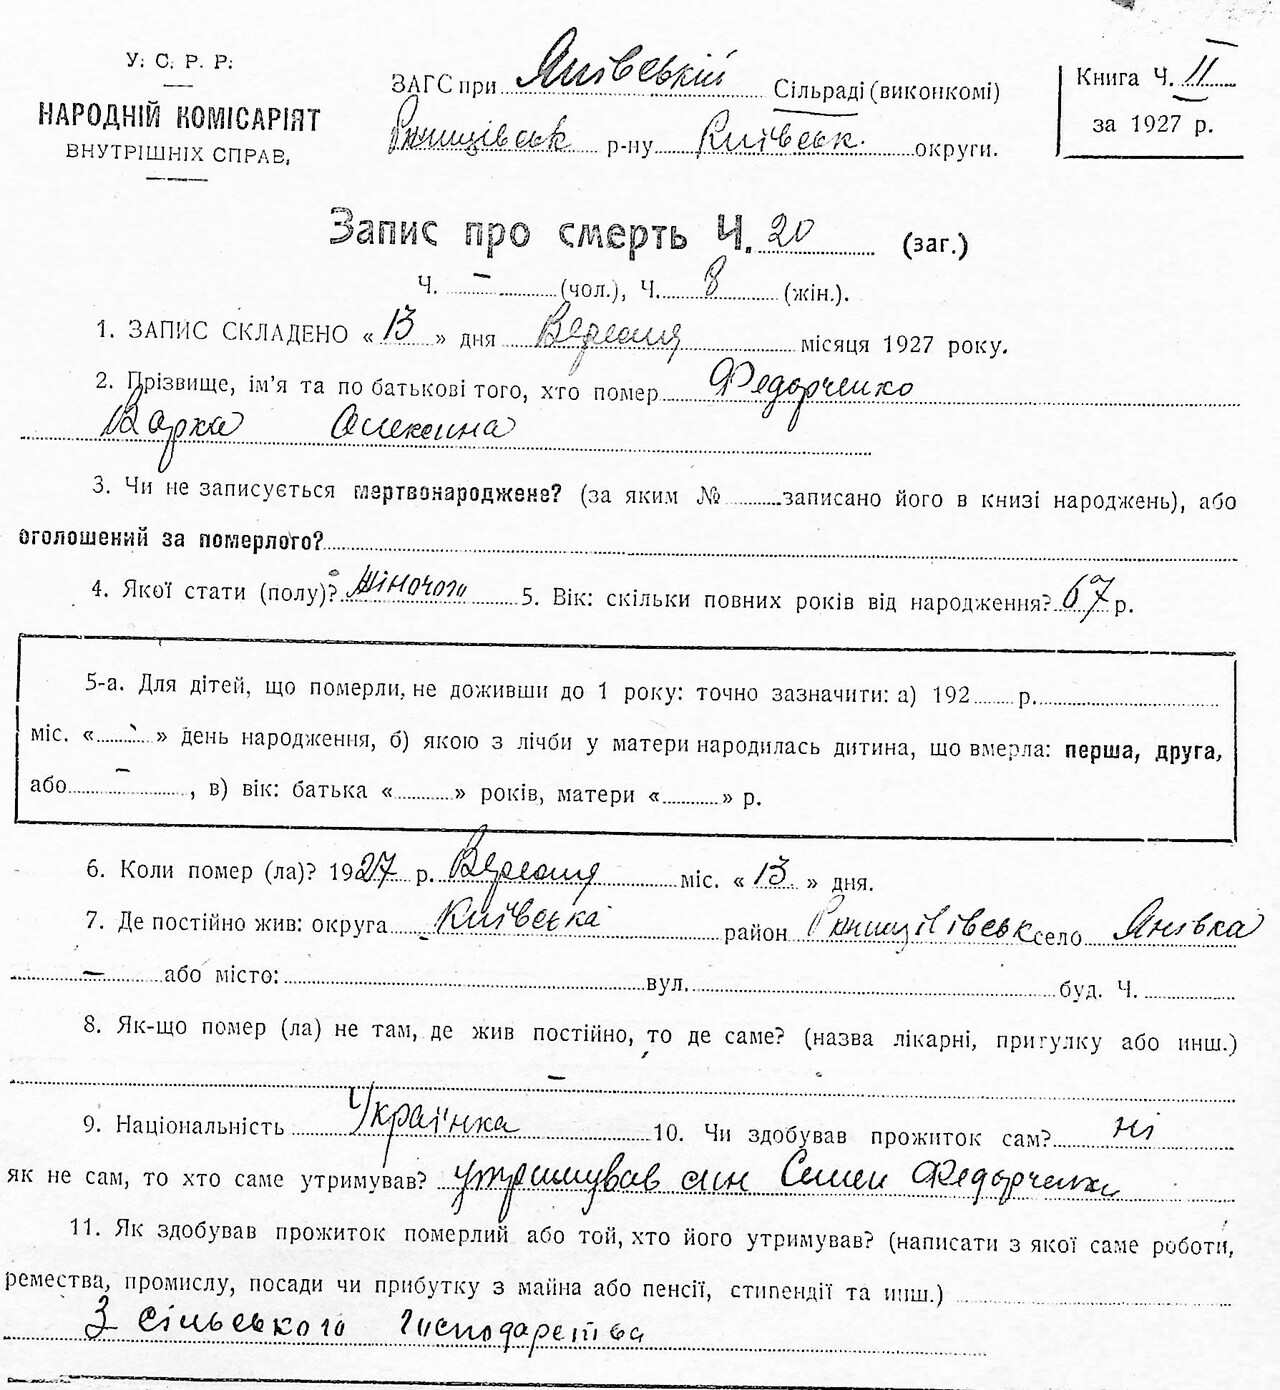 У. С. Р. Р.
НАРОДНІЙ КОМІСАРІЯТ
ВНУТРІШНІХ СПРАВ,
ЗАГС при Янівській Сільраді (виконкомі)
Ржищівськ р-ну Київськ. округи.
Книга Ч. II
за 1927 р.
Запис про смерть Ч. 20 (заг.)
Ч. – (чол.), Ч. 8 (жін.).
1. ЗАПИС СКЛАДЕНО « 13 » дня Вересня місяця 1927 року.
2. Прізвище, ім'я та по батькові того, хто помер Федорченко
Варка Олексина
3. Чи не записується мертвонароджене? (за яким № записано його в книзі народжень), або
оголошений за померлого?
4. Якої стати (полу)? жіночого 5. Вік: скільки повних років від народження? 67 р.
5-а. Для дітей, що померли, не доживши до 1 року: точно зазначити: а) 192 р.
міс. « » день народження, б) якою з лічби у матери народилась дитина, що вмерла: перша, друга,
або – , в) вік: батька « » років, матери « » р.
6. Коли помер (ла)? 1927 р. Вересня міс. « 13 » дня.
7. Де постійно жив: округа Київська район село Янівка
– або місто: вул. буд. Ч.
8. Як-що помер (ла) не там, де жив постійно, то де саме? (назва лікарні, пригулку або инш.)
–
9. Національність Українка 10. Чи здобував прожиток сам? ні
як не сам, то хто саме утримував? утримував син Семен Федорченко
11. Як здобував прожиток померлий або той, хто його утримував? (написати з якої саме роботи,
ремества, промислу, посади чи прибутку з майна або пенсії, стипендії та инш.)
З сільського господарства